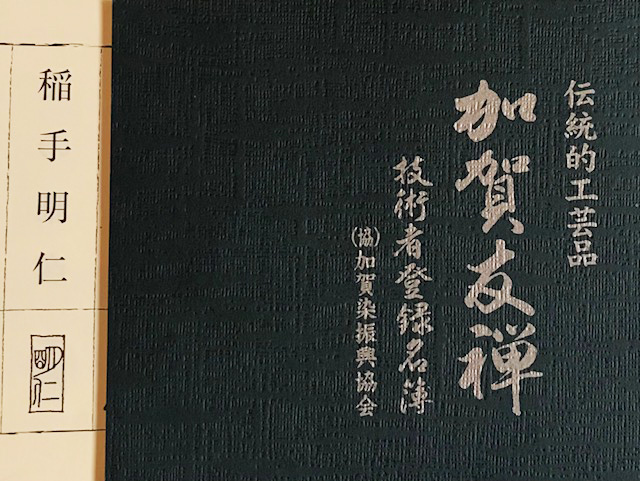 伝統的工芸品
加賀友禅
技術者登録名簿
(協)加賀染振興協会
稲手明仁
明仁